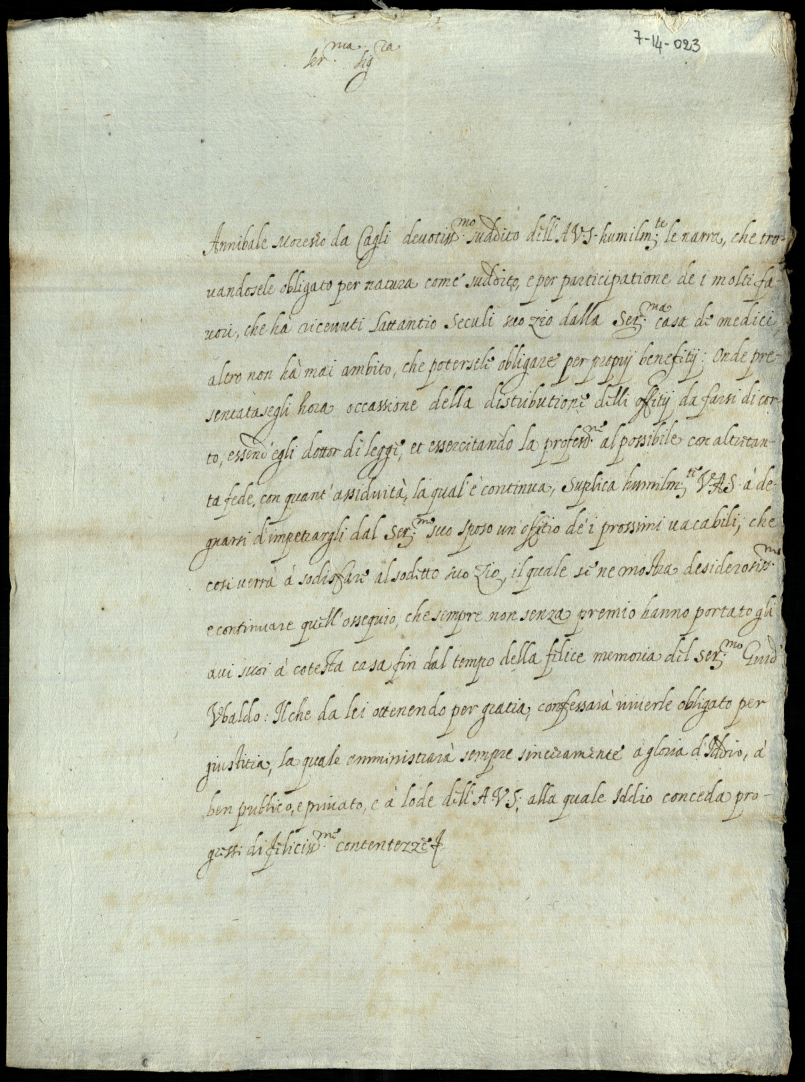 7-14-023
Ser.ma Sig.ra
Annibale da Cagli devotiss.mo suddito dell'A V S. humilm.te le narra, che tro-
vandosele obligato per natura come suddito, e per participatione de i molti fa
vori, che hà ricevuti Lattantio Seculi suo zio dalla Ser.ma casa de medici
altro non hà mai ambito, che potersele obligare per proprij benefitij: Onde pre-
sentatasegli hora occassione della distributione delli offitij da farsi di cor-
to, essend'egli dottor di leggi, et essercitando la profess.ne al possibile con altretan-
ta fede, con quant'assiduità, la qual'è continua, Suplica humilm.te V A S. à de-
gnarsi d'impetrargli dal Ser.mo suo sposo un offitio de i prossimi vacabili, che
cosi verrà à sodisfare al sodetto suo Zio, il quale se ne mostra desiderosiss.mo
e continuare quell'ossequio, che sempre non senza premio hanno portato gli
avi suoi à cotesta casa fin dal tempo della felice memoria del Ser.mo Guid
Vbaldo: Il che da lei ottenendo per gratia, confessarà viverle obligato per
giustitia, la quale amministrarà sempre sinceramente à gloria d'Iddio, à
ben publico, e privato, e à lode dell'A V S. alla quale Iddio conceda pro-
gressi di feliciss.me contentezze